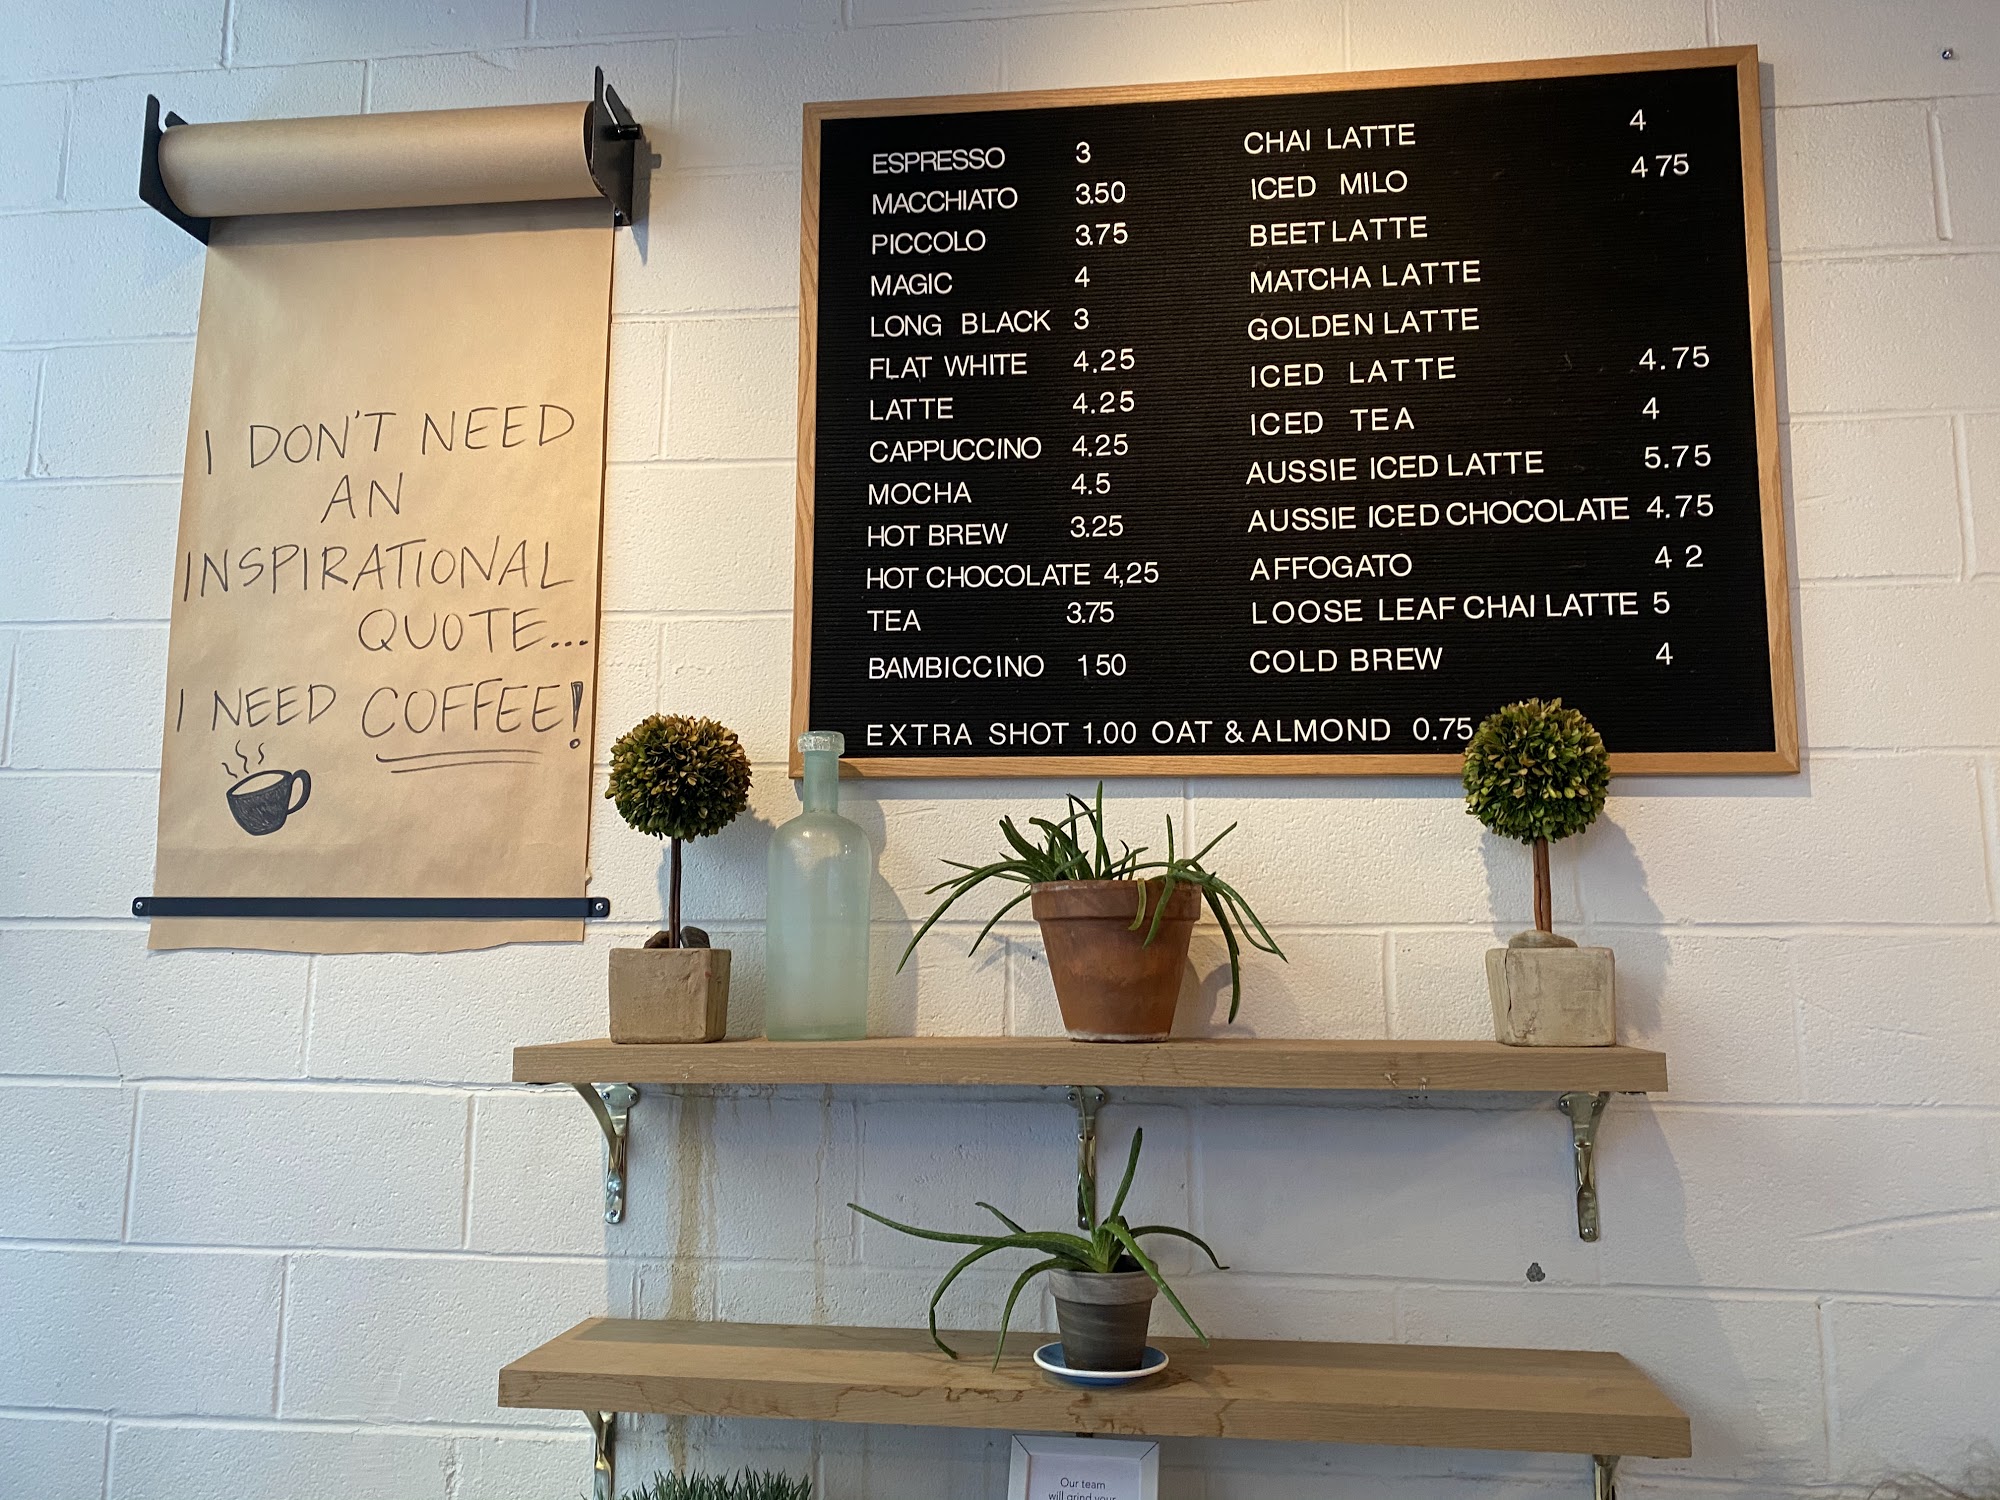 I DON'T NEED
AN
INSPIRATIONAL
QUOTE...
I NEED COFFEE!
ESPRESSO 3
MACCHIATO 3.50
PICCOLO 3.75
MAGIC 4
LONG BLACK 3
FLAT WHITE 4.25
LATTE 4.25
CAPPUCCINO 4.25
MOCHA 4.5
HOT BREW 3.25
HOT CHOCOLATE 4,25
TEA 3.75
BAMBICCINO 1 50
CHAI LATTE 4
ICED MILO 4 75
BEET LATTE
MATCHA LATTE
GOLDEN LATTE
ICED LATTE 4.75
ICED TEA 4
AUSSIE ICED LATTE 5.75
AUSSIE ICED CHOCOLATE 4.75
AFFOGATO 4 2
LOOSE LEAF CHAI LATTE 5
COLD BREW 4
EXTRA SHOT 1.00 OAT & ALMOND 0.75
Our team
will grind your